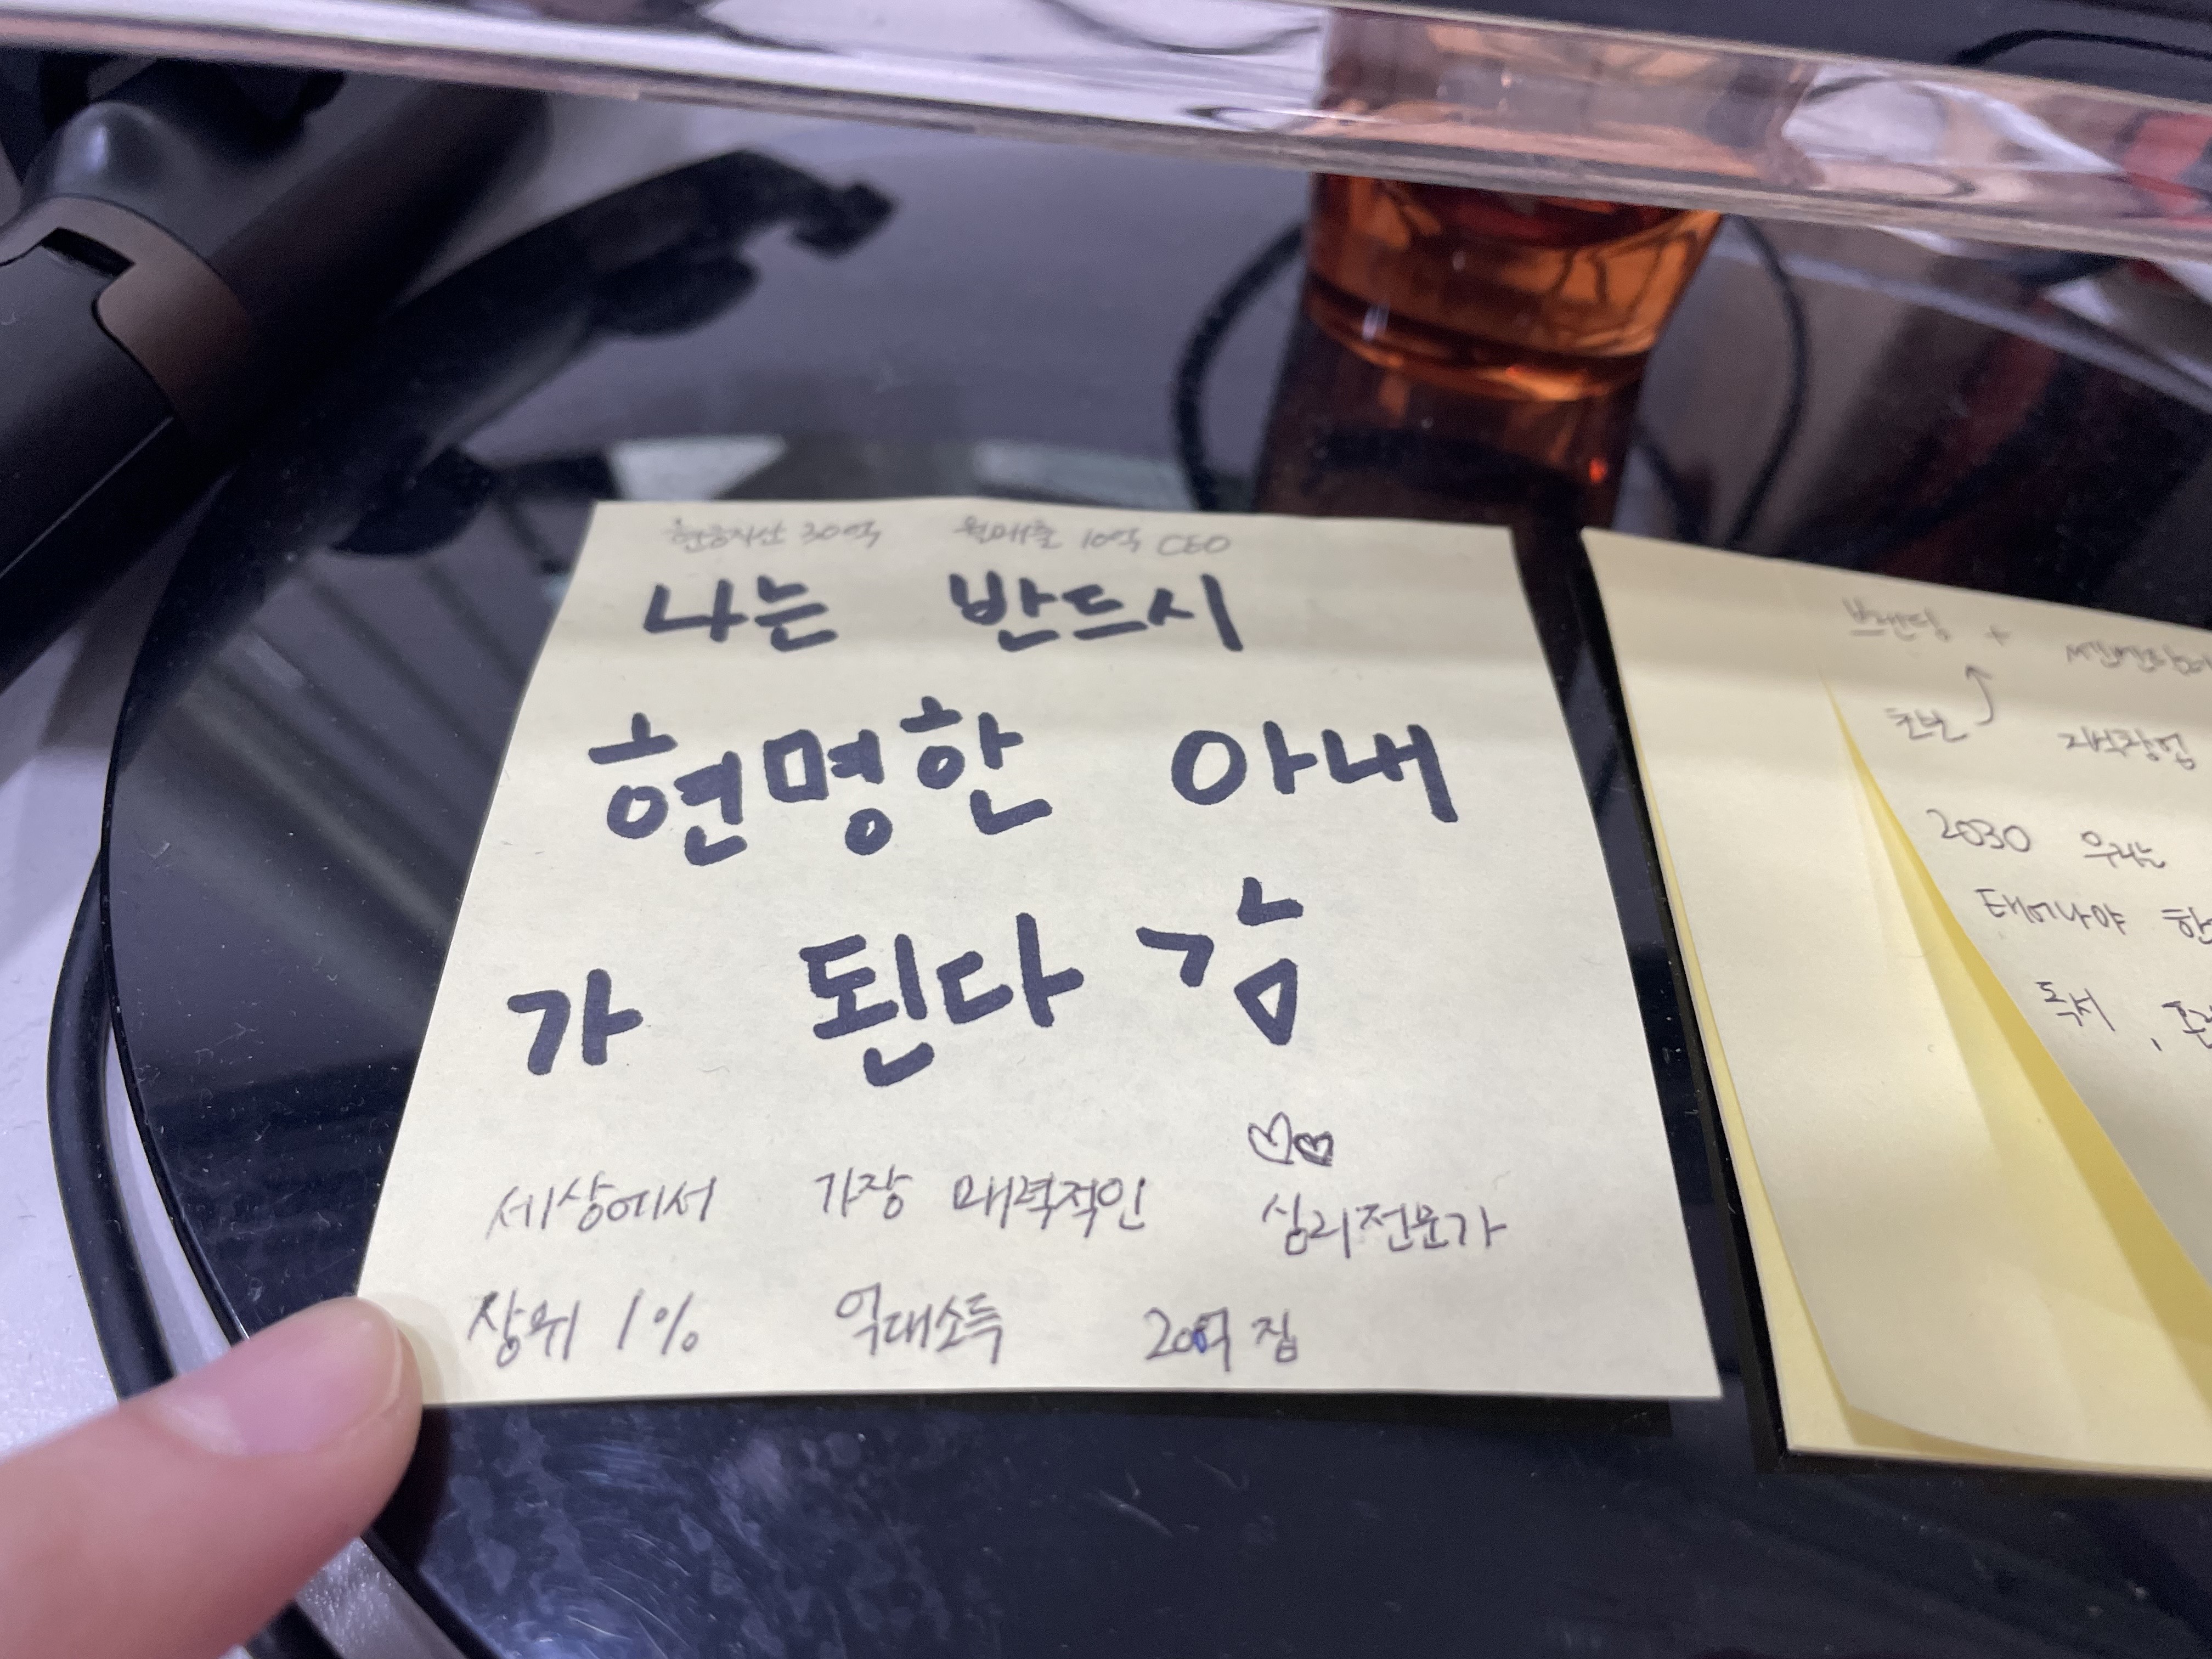 현금자산 30억 월매출 10억 CEO
나는 반드시
현명한 아내
가 된다 감
세상에서 가장 매력적인 심리전문가
상위 1% 억대소득 20억 집
브랜딩 +
초보 지식창업
2030 우리는
태어나야 한
독서,